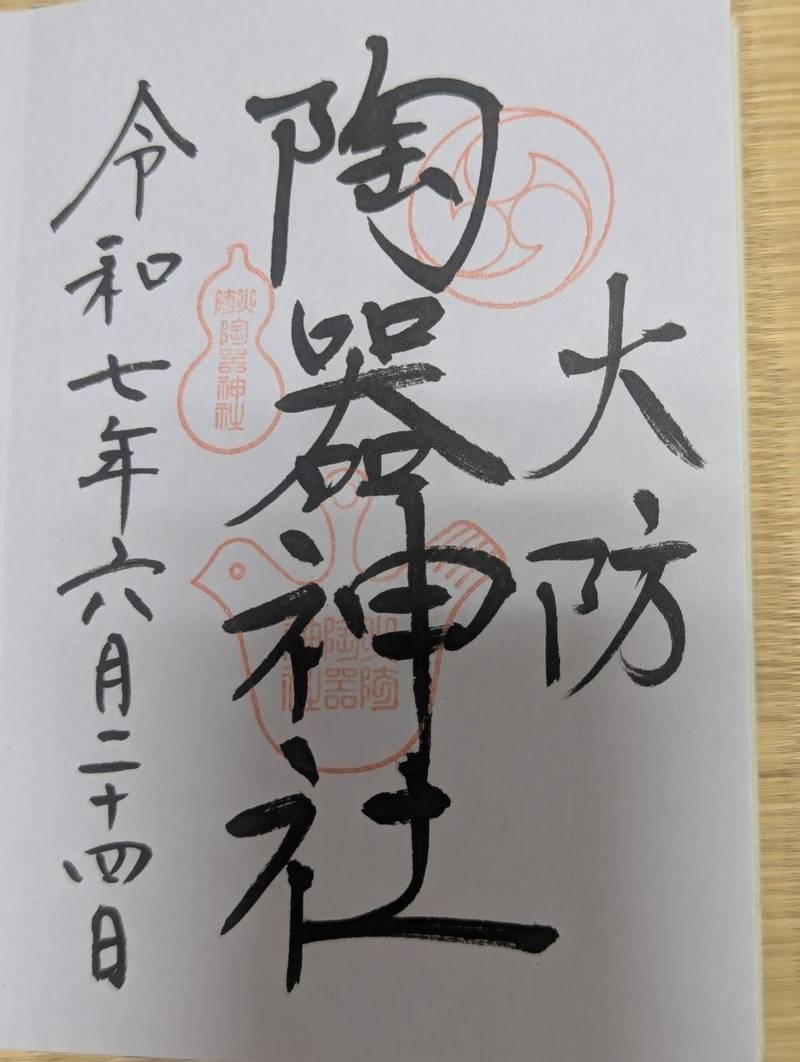 火防
陶器神社
令和七年六月二十四日
火防
陶器神社
火防
陶器
神社